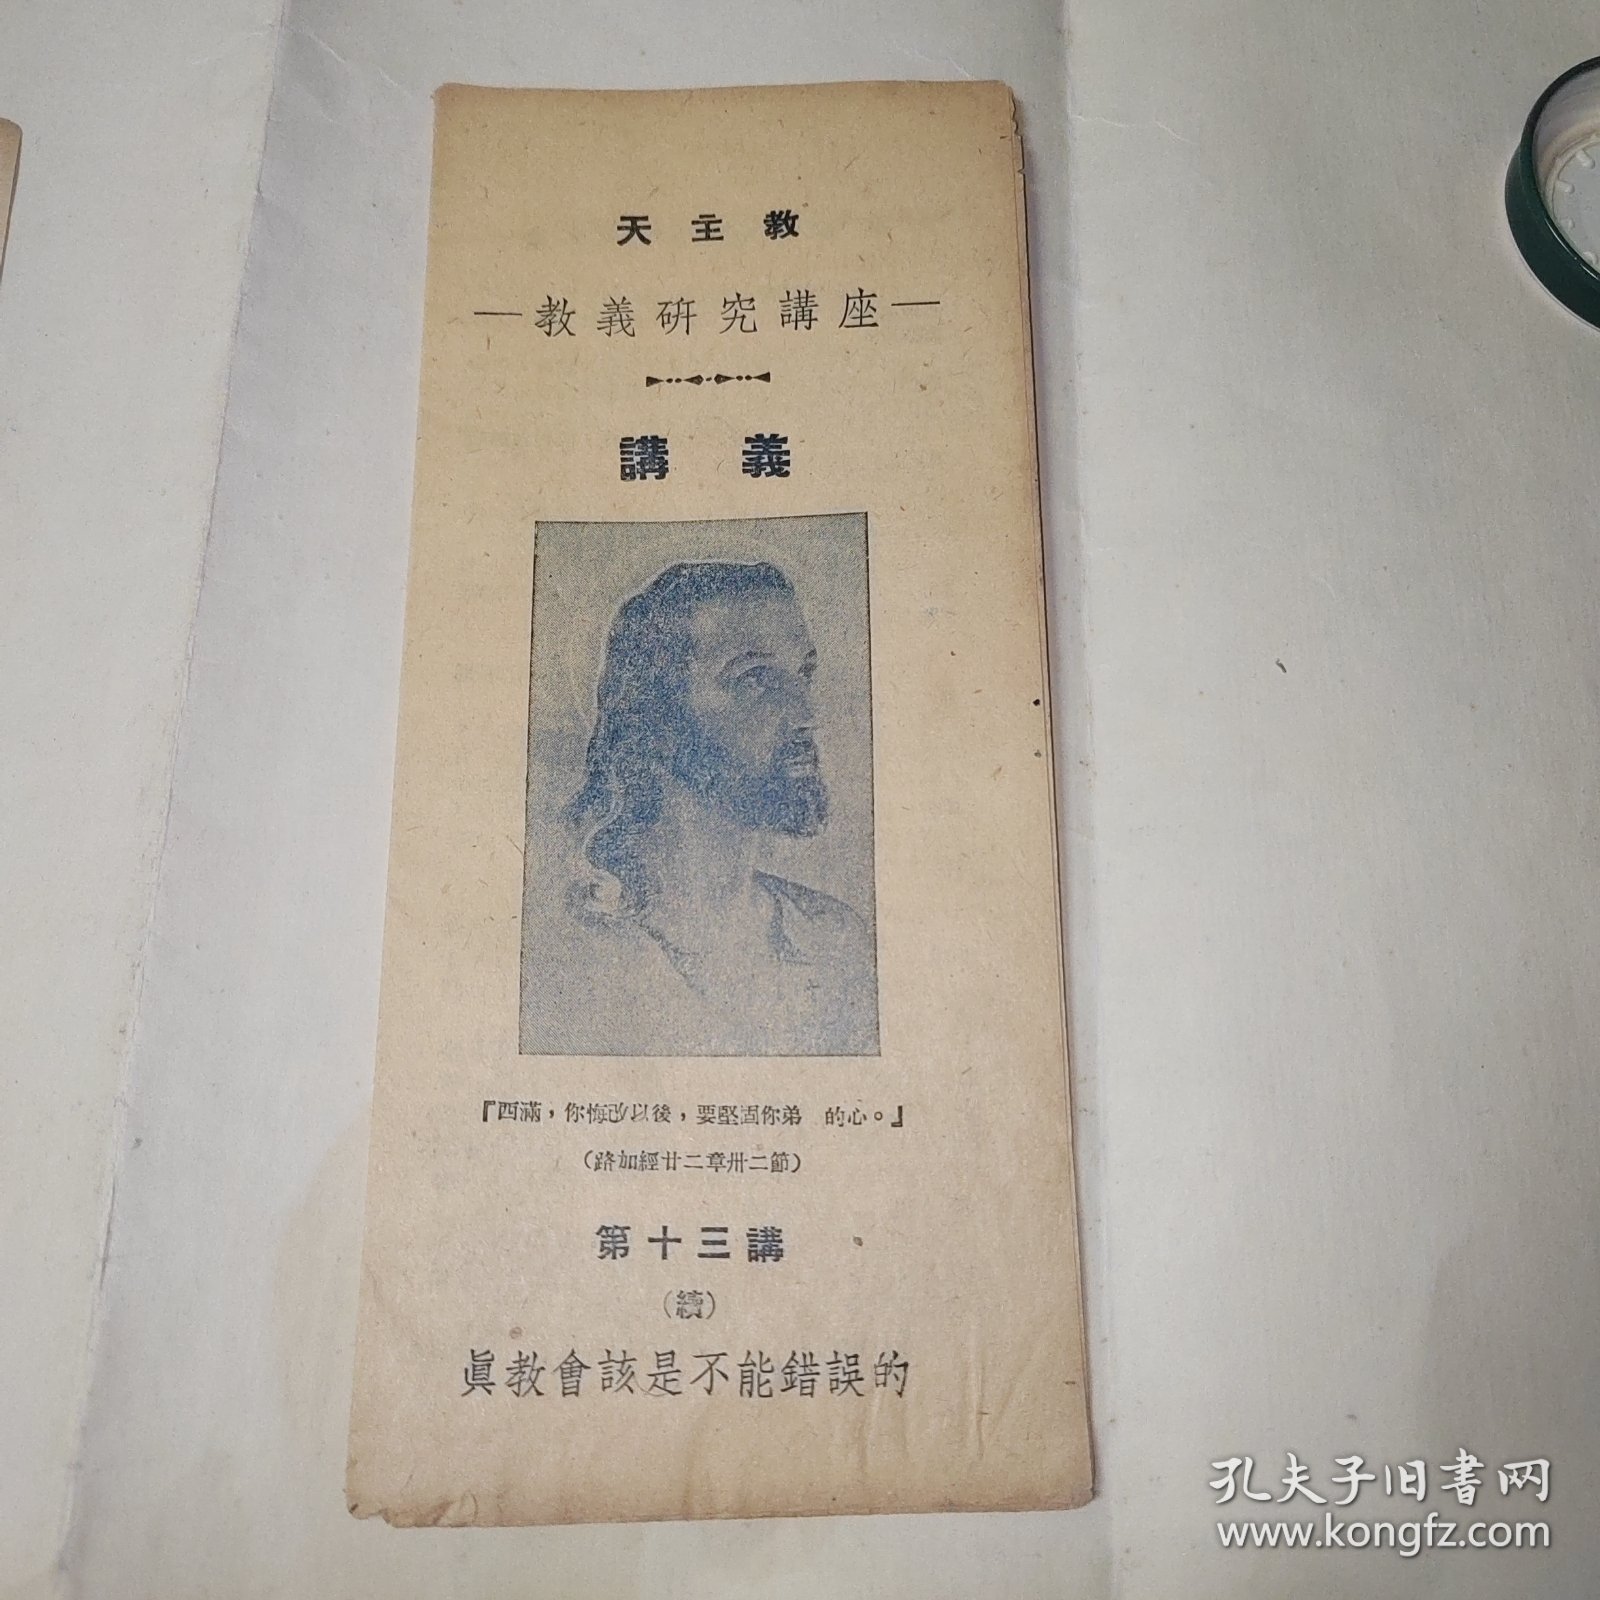 天主教
—教義研究講座—
講義
『西滿，你悔改以後，要堅固你弟 的心。』
（路加經廿二章卅二節）
第十三講
（續）
眞教會該是不能錯誤的
孔夫子旧書网
www.kongfz.com